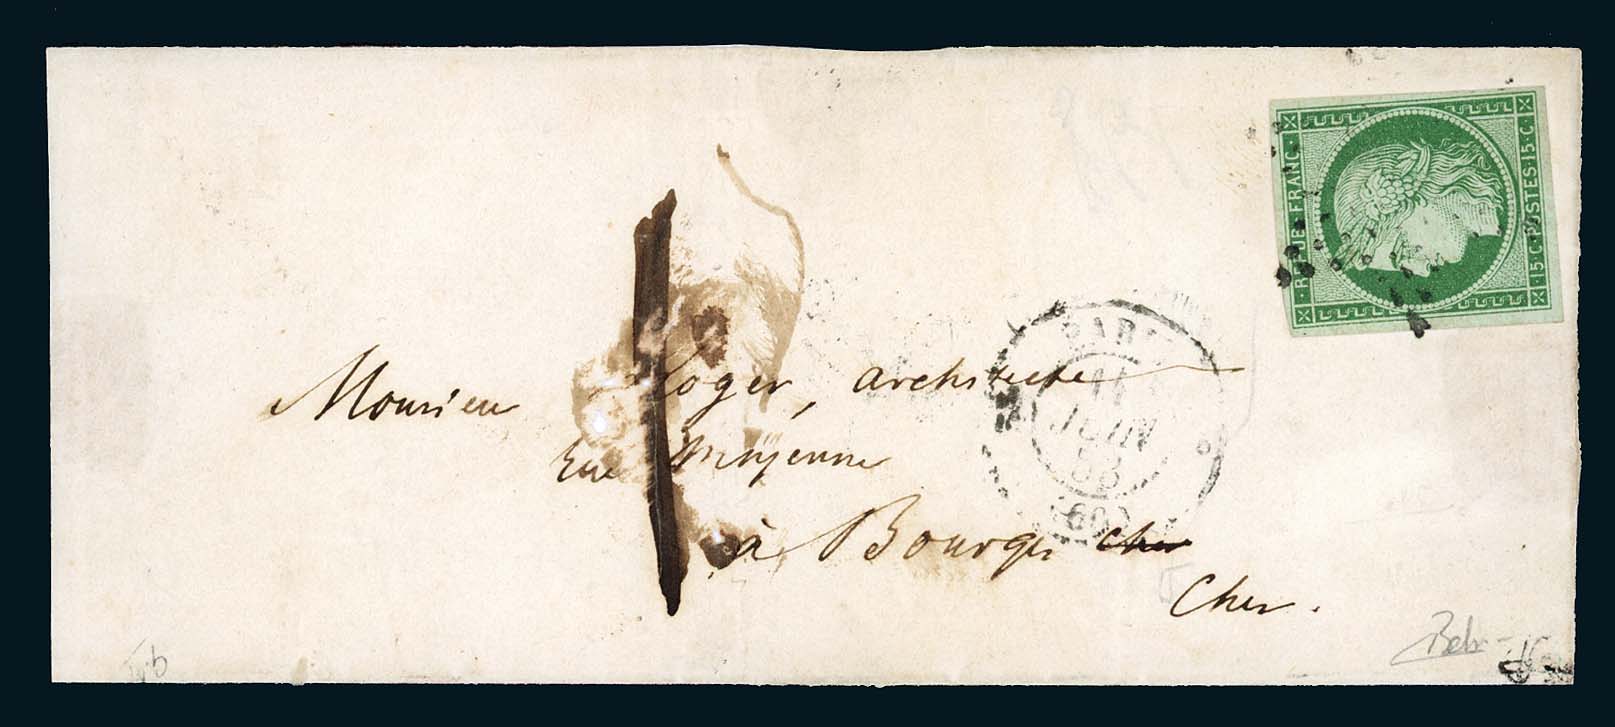 REPUB FRANC
15·C·POSTES·15·C·
PARIS
11
JUIN
53
(60)
Monsieur Roger, architecte
Rue Moyenne
à Bourges Cher
Cher.